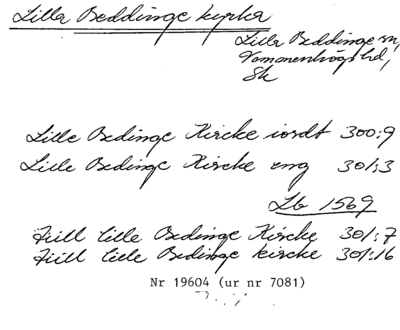 Lilla Beddinge kyrka
Lilla Beddinge sn,
Vemmenhögs hd,
Sk
Lille Bedinge Kircke iordt 300:9
Lille Bedinge Kircke eng 301:3
Lb 1569
Till lille Bedinge Kircke 301:7
Till lille Bedinge kircke 301:16
Nr 19604 (ur nr 7081)